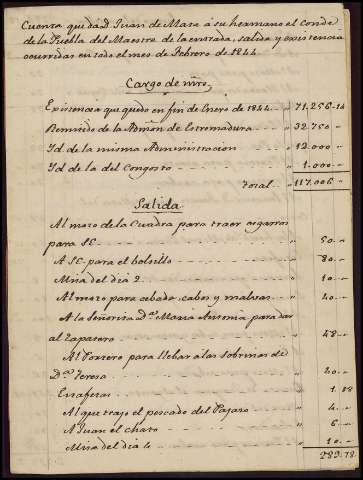 Cuenta que da Dn Juan de Mata á su hermano el Conde
de la Puebla del Maestre de la entrada, salida y existencia
ocurridas en todo el mes de Febrero de 1844
Cargo de mrs.
Existencia que quedó en fin de Enero de 1844 " 71,256.14
Remitido de la Admon de Estremadura " 32.750 "
Id de la misma Administracion " 12.000 "
Id de la del Congosto " 1.000 "
Total " 117.006 "
Salida
Al mozo de la Cuadra para traer cigarros
para SE " 50 "
A SE para el bolsillo " 80 "
Misa del dia 2 " 10 "
Al mozo para cebada, cabos y malvas " 40 "
A la Señorita Da. Maria Antonia para dar
al Zapatero " 48 "
Al Portero para llebar á las sobrinas de
Da. Teresa " 20 "
En 1.
Al que trajo el pescado del Pajaro " 4 "
A Juan el chato " 6 "
Misa del dia 4 " 10 "
289.18